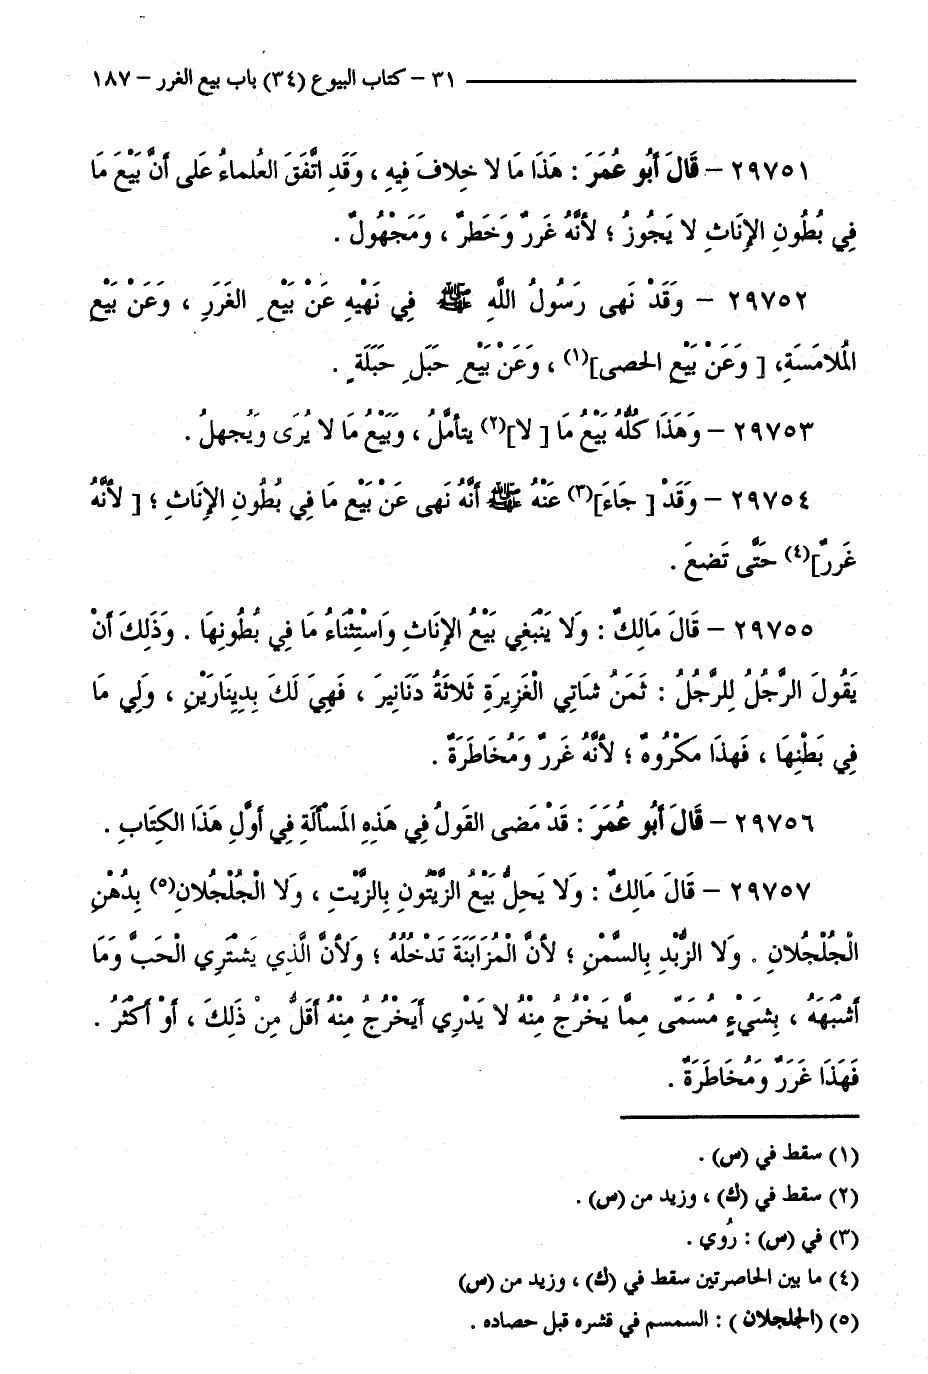 ٣١ – كتاب البيوع (٣٤) باب بيع الغرر – ١٨٧
٢٩٧٥١ – قَالَ أَبُو عُمَرَ : هَذَا مَا لا خِلافَ فِيهِ ، وَقَدِ اتَّفَقَ العُلماءُ عَلى أَنَّ بَيْعَ مَا
فِي بُطُونِ الإِنَاثِ لا يَجُوزُ ؛ لأَنَّهُ غَررٌ وَخَطرٌ ، وَمَجْهُولٌ .
٢٩٧٥٢ – وَقَدْ نَهى رَسُولُ اللَّهِ ﷺ فِي نَهْيِهِ عَنْ بَيْعِ الغَرَرِ ، وَعَنْ بَيْعِ
المُلامَسَةِ، [ وَعَنْ بَيْعِ الحَصى](١) ، وَعَنْ بَيْعِ حَبَلِ حَبَلَةٍ .
٢٩٧٥٣ – وَهَذَا كُلُّهُ بَيْعُ مَا [ لا](٢) يتأمَّلُ ، وَبَيْعُ مَا لا يُرَى وَيُجهلُ .
٢٩٧٥٤ – وَقَدْ [ جَاءَ](٣) عَنْهُ ﷺ أَنَّهُ نَهى عَنْ بَيْعِ مَا فِي بُطُونِ الإِنَاثِ ؛ [ لأَنَّهُ
غَررٌ](٤) حَتَّى تَضعَ .
٢٩٧٥٥ – قَالَ مَالِكٌ : وَلا يَنْبَغِي بَيْعُ الإِنَاثِ وَاسْتِثْنَاءُ مَا فِي بُطُونِهَا . وَذَلِكَ أَنْ
يَقُولَ الرَّجُلُ لِلرَّجُلُ : ثَمَنُ شَاتِي الْغَزِيرَةِ ثَلاثَةُ دَنَانِيرَ ، فَهِيَ لَكَ بِدِينَارَيْنِ ، وَلِي مَا
فِي بَطْنِهَا ، فَهذَا مَكْرُوهٌ ؛ لأَنَّهُ غَررٌ وَمُخَاطَرَةٌ .
٢٩٧٥٦ – قَالَ أَبُو عُمَرَ : قَدْ مَضى القَولُ فِي هَذِهِ المَسأَلَةِ فِي أَوَّلِ هَذَا الكِتَابِ .
٢٩٧٥٧ – قَالَ مَالِكٌ : وَلا يَحِلُّ بَيْعُ الزَّيْتُونِ بِالزَّيْتِ ، وَلا الْجُلْجُلانِ(٥) بِدُهْنِ
الْجُلْجُلانِ . وَلا الزُّبْدِ بِالسَّمْنِ ؛ لأَنَّ الْمُزَابَنَةَ تَدْخُلُهُ ؛ وَلأَنَّ الَّذِي يَشْتَرِي الْحَبَّ وَمَا
أَشْبَهَهُ ، بِشَيْءٍ مُسَمّى مِمَّا يَخْرُجُ مِنْهُ لا يَدْرِي أَيَخْرُجُ مِنْهُ أَقَلُّ مِنْ ذَلِكَ ، أَوْ أَكْثَرُ .
فَهَذَا غَرَرٌ وَمُخَاطَرَةٌ .
(١) سقط في (ص) .
(٢) سقط في (ك) ، وزيد من (ص) .
(٣) في (ص) : رُوي .
(٤) ما بين الحاصرتين سقط في (ك) ، وزيد من (ص)
(٥) (الجلجلان ) : السمسم في قشره قبل حصاده .